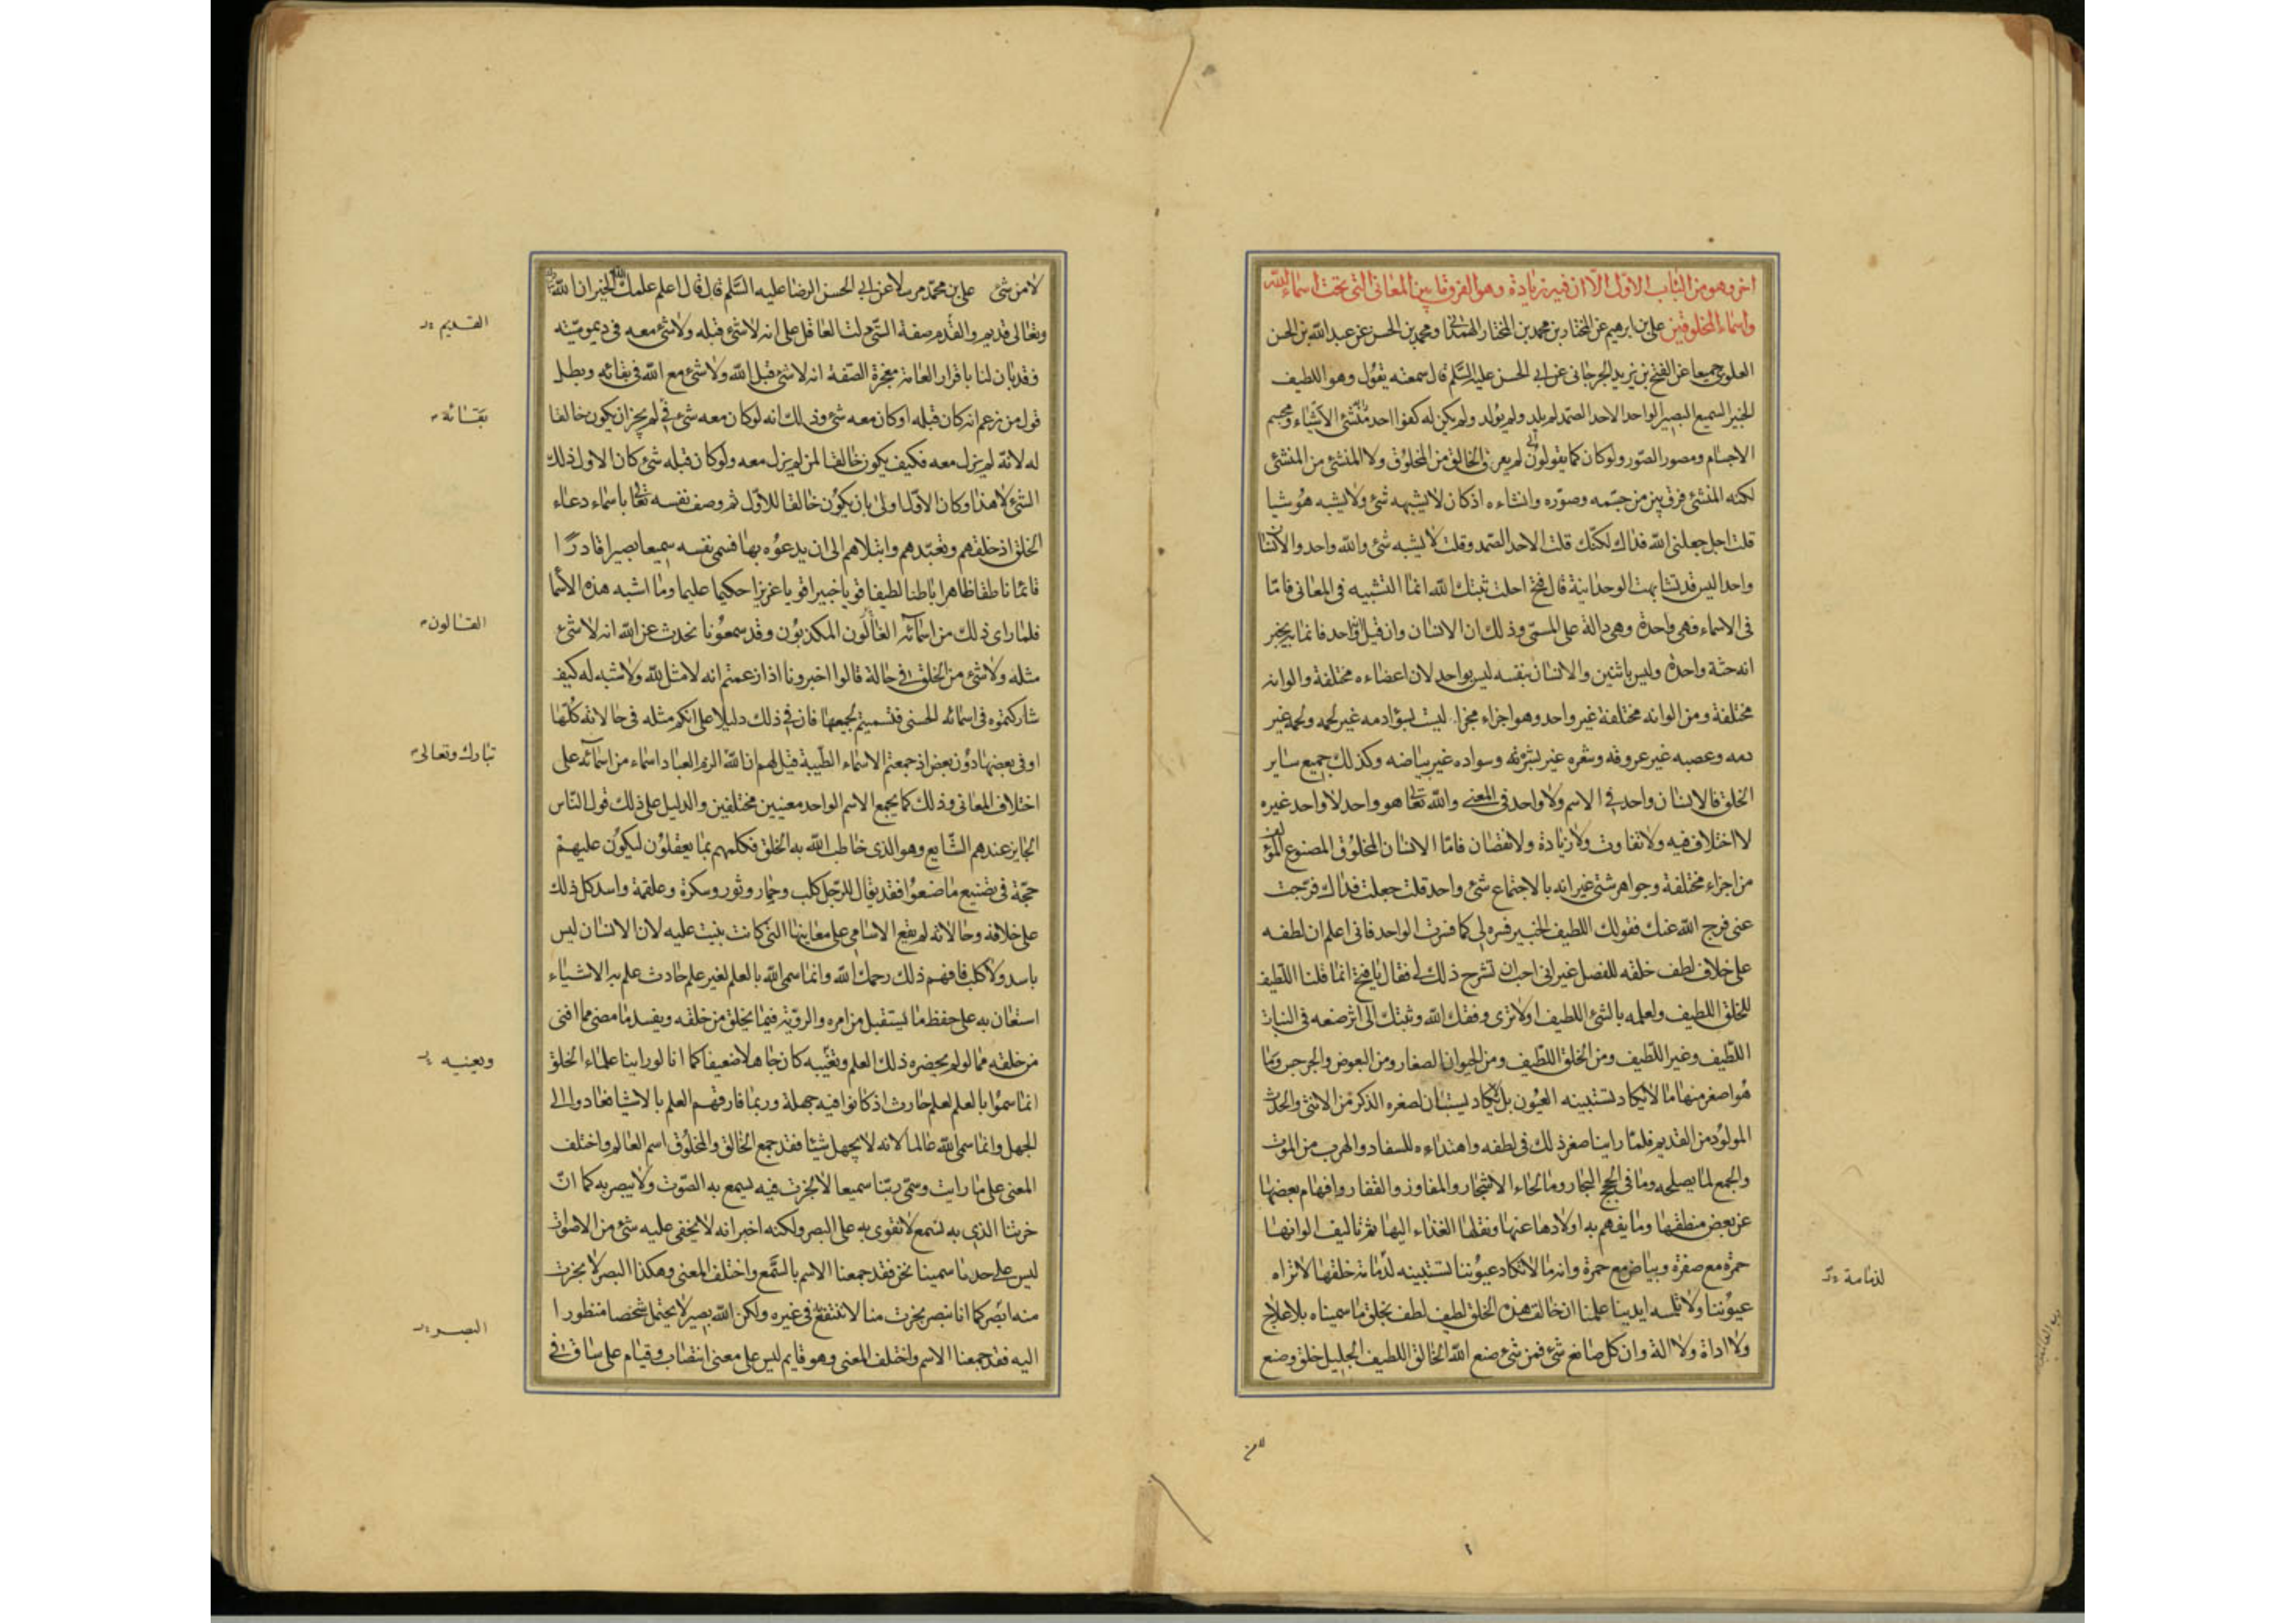 اخر وهو من الباب الاول الا ان فيه زيادة وهو الفرق ما بين المعاني التي تحت اسماء الله
واسماء المخلوقين علي بن ابرهيم عن المختار بن محمد بن المختار الهمداني ومحمد بن الحسن عن عبد الله بن الحسن
العلوي جميعا عن الفتح بن يزيد الجرجاني عن ابي الحسن عليه السلم قال سمعته يقول وهو اللطيف
الخبير السميع البصير الواحد الاحد الصمد لم يلد ولم يولد ولم يكن له كفوا احد منشئ الاشياء ومجسم
الاجسام ومصور الصور ولو كان كما يقولون لم يعرف الخالق من المخلوق ولا المنشئ من المنشئ
لكنه المنشئ فرق بين من جسمه وصوره وانشاءه اذ كان لا يشبهه شئ ولا يشبه هو شيا
قلت اجل جعلني الله فداك لكنك قلت الاحد الصمد وقلت لا يشبه شئ والله واحد والانسان
واحد اليس قد تشابهت الوحدانية قال يا فتح احلت ثبتك الله انما التشبيه في المعاني فاما
في الاسماء فهي واحدة وهي دالة على المسمى وذلك ان الانسان وان قيل واحد فانما يخبر
انه جثة واحدة وليس باثنين والانسان نفسه ليس بواحد لان اعضاءه مختلفة والوانه
مختلفة ومن الوانه مختلفة غير واحد وهو اجزاء مجزا ليست بسواء دمه غير لحمه ولحمه غير
دمه وعصبه غير عروقه وشعره غير بشرته وسواده غير بياضه وكذلك جميع ساير
الخلق فالانسان واحد في الاسم ولا واحد في المعنى والله تعالى هو واحد لا واحد غيره
لا اختلاف فيه ولا تفاوت ولا زيادة ولا نقصان فاما الانسان المخلوق المصنوع المؤلف
من اجزاء مختلفة وجواهر شتى غير انه بالاجتماع شئ واحد قلت جعلت فداك فرجت
عني فرج الله عنك فقولك اللطيف الخبير فسره لي كما فسرت الواحد فاني اعلم ان لطفه
على خلاف لطف خلقه للفصل غير اني احب ان تشرح ذلك لي فقال يا فتح انما قلنا اللطيف
للخلق اللطيف ولعلمه بالشئ اللطيف او لا ترى وفقك الله وثبتك الى اثر صنعه في النبات
اللطيف وغير اللطيف ومن الخلق اللطيف ومن الحيوان الصغار ومن البعوض والجرجس وما
هو اصغر منها ما لا يكاد تستبينه العيون بل لا يكاد يستبان لصغره الذكر من الانثى والحدث
المولود من القديم فلما راينا صغر ذلك في لطفه واهتداءه للسفاد والهرب من الموت
والجمع لما يصلحه وما في لجج البحار وما في لحاء الاشجار والمفاوز والقفار وافهام بعضها
عن بعض منطقها وما يفهم به اولادها عنها ونقلها الغذاء اليها ثم تاليف الوانها
حمرة مع صفرة وبياض مع حمرة وانه ما لا تكاد عيوننا تستبينه لدمامة خلقها لا تراه
عيوننا ولا تلمسه ايدينا علمنا ان خالق هذه الخلق لطيف لطف بخلق ما سميناه بلا علاج
ولا اداة ولا الة وان كل صانع شئ فمن شئ صنع الله الخالق اللطيف الجليل خلق وصنع
لدمامة
لا من
لا من شئ علي بن محمد مرسلا عن ابي الحسن الرضا عليه السلم قال قال اعلم علمك الله الخير ان الله
وتعالى قديم والقدم صفة التي دلت العاقل على انه لا شئ قبله ولا شئ معه في ديموميته
فقد بان لنا باقرار العامة معجزة الصفة انه لا شئ قبل الله ولا شئ مع الله في بقائه وبطل
قول من زعم انه كان قبله او كان معه شئ وذلك انه لو كان معه شئ في لم يجز ان يكون خالقا
له لانه لم يزل معه فكيف يكون خالقا لمن لم يزل معه ولو كان قبله شئ كان الاول ذلك
الشئ لا هذا وكان الاول اولى بان يكون خالقا للاول ثم وصف نفسه تعالى باسماء دعاء
الخلق اذ خلقهم وتعبدهم وابتلاهم الى ان يدعوه بها فسمى نفسه سميعا بصيرا قادرا
قائما ناطقا ظاهرا باطنا لطيفا قويا خبيرا قويا عزيزا حكيما عليما وما اشبه هذه الاسما
فلما راى ذلك من اسمائه الغالون المكذبون وقد سمعونا نحدث عن الله انه لا شئ
مثله ولا شئ من الخلق في حاله قالوا اخبرونا اذا زعمتم انه لا مثل لله ولا شبه له كيف
شاركتموه في اسمائه الحسنى فتسميتم بجميعها فان في ذلك دليلا على انكم مثله في حالاته كلها
او في بعضها دون بعض اذ جمعتم الاسماء الطيبة قيل لهم ان الله الزم العباد اسماء من اسمائه على
اختلاف المعاني وذلك كما يجمع الاسم الواحد معنيين مختلفين والدليل على ذلك قول الناس
الجايز عندهم الشايع وهو الذي خاطب الله به الخلق فكلمهم بما يعقلون ليكون عليهم
حجة في تضييع ما ضيعوا فقد يقال للرجل كلب وحمار وثور وسكرة وعلقمة واسد كل ذلك
على خلافه وحالاته لم يقع الاسامي على معانيها التي كانت بنيت عليه لان الانسان ليس
باسد ولا كلب فافهم ذلك رحمك الله وانما سمى الله بالعلم لغير علم حادث علم به الاشياء
استعان به على حفظ ما يستقبل من امره والروية فيما يخلق من خلقه ويفسد ما مضى مما افنى
من خلقه مما لو لم يحضره ذلك العلم وتغيبه كان جاهلا ضعيفا كما انا لو راينا علماء الخلق
انما سموا بالعلم لعلم حادث اذ كانوا فيه جهلة وربما فارقهم العلم بالاشيا فعادوا الى
الجهل وانما سمى الله عالما لانه لا يجهل شيئا فقد جمع الخالق والمخلوق اسم العالم واختلف
المعنى على ما رايت وسمى ربنا سميعا لا بخرت فيه يسمع به الصوت ولا يبصر به كما ان
خرتنا الذي به نسمع لا نقوى به على البصر ولكنه اخبر انه لا يخفى عليه شئ من الاصوات
ليس على حد ما سمينا نحن فقد جمعنا الاسم بالسمع واختلف المعنى وهكذا البصر لا بخرت
منه ابصر كما انا نبصر بخرت منا لا ننتفع به في غيره ولكن الله بصير لا يحتمل شخصا منظورا
اليه فقد جمعنا الاسم واختلف المعنى وهو قايم ليس على معنى انتصاب وقيام على ساق في
القديم
بقائه
القالون
تبارك وتعالى
ويعنيه
البصر